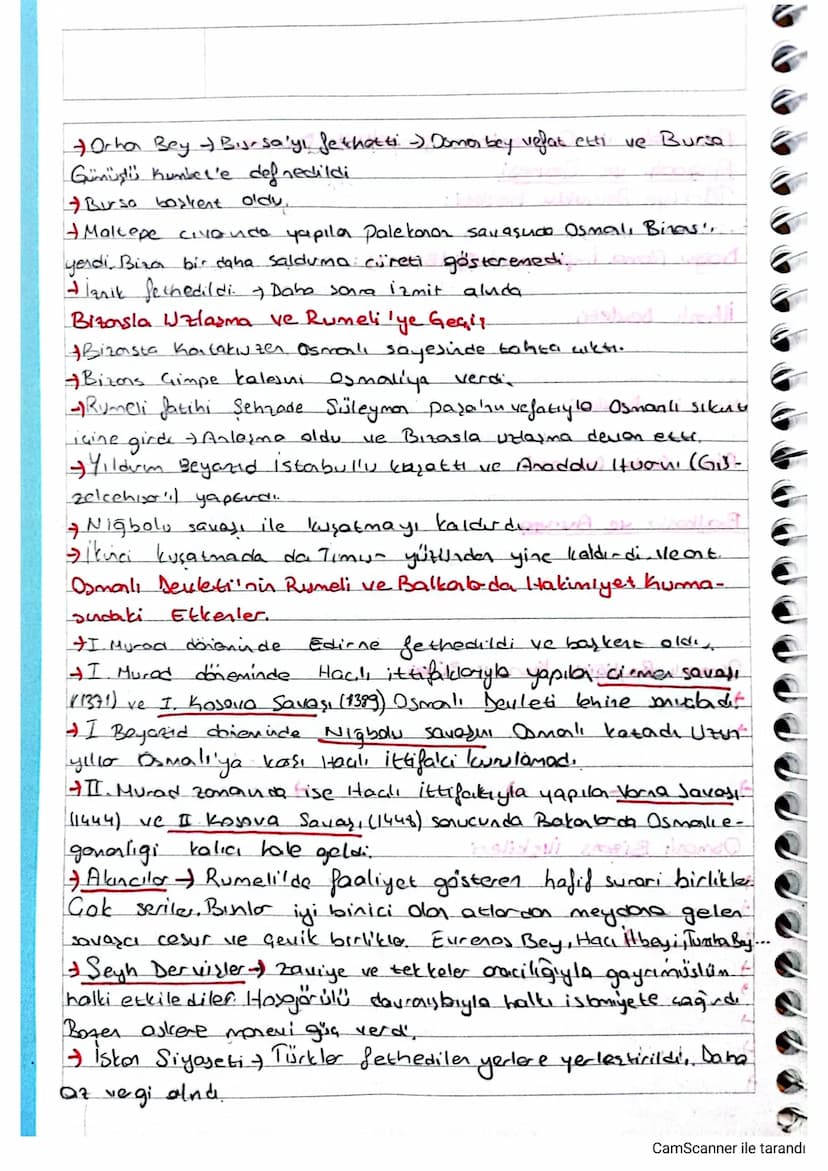 → Orhan Bey → Bursa'yı fethetti → Osman bey vefat etti ve Bursa
Gümüşlü Kumbet'e defnedildi
→ Bursa başkent oldu.
→ Maltepe civarında yapılan Palekanon savaşında Osmanlı Bizans'ı
yendi. Bizans bir daha saldırma cüreti gösteremedi.
→ İznik fethedildi → Daha sonra İzmit alındı
Bizansla Uzlaşma ve Rumeli'ye Geçiş
→ Bizansta Kantakuzen Osmanlı sayesinde tahta çıktı.
→ Bizans Çimpe kalesini Osmalı'ya verdi.
→ Rumeli fatihi Şehzade Süleyman paşa'nın vefatıyla Osmanlı sıkıntı
içine girdi → Anlaşma oldu ve Bizasla uzlaşma devam etti.
→ Yıldırım Beyazid İstanbul'u kuşattı ve Anadolu Hisarı (Gü-
zelcehisar'ı) yaptırdı.
→ Niğbolu savaşı ile kuşatmayı kaldırdı.
→ İkinci kuşatmada da Timur yüzünden yine kaldırdı.
Osmanlı Devleti'nin Rumeli ve Balkanlarda Hakimiyet Kurma-
sındaki Etkenler.
→ I. Murad döneminde Edirne fethedildi ve başkent oldu.
→ I. Murad döneminde Haçlı ittifaklarıyla yapılan Çirmen savaşı
(1371) ve I. Kosova Savaşı (1389) Osmalı Devleti lehine
→ I Beyazid döneminde Niğbolu savaşını Osmalı kazadı Uzun
yıllar Osmalı'ya kaşı Haçlı ittifakı kurulamadı.
→ II. Murad zamanında ise Haclı ittifakıyla yapılan Varna Savaşı
(1444) ve II Kosova Savaşı (1448) sonucunda Balkanlarda Osmanlı e-
genanlığı kalıcı hale geldi.
→ Akıncılar → Rumeli'de faaliyet gösteren hafif süvari birlikler.
Çok seriler. Bunlar iyi binici olan atlardan meydana gelen
savaşcı cesur ve çevik birlikler. Evrenos Bey, Hacı İlbeyi, Turahan Bey...
→ Şeyh Dervişler → Zaviye ve tekkeler aracılığıyla gayrimüslim
halkı etkilediler. Hoşgörülü davranışlarıyla halkı islamiyete çağırdı
Bazen askere manevi güç verdi.
→ İskan Siyaseti → Türkler fethedilen yerlere yerleştirildi. Daha
az vergi alndı.
CamScanner ile tarandı